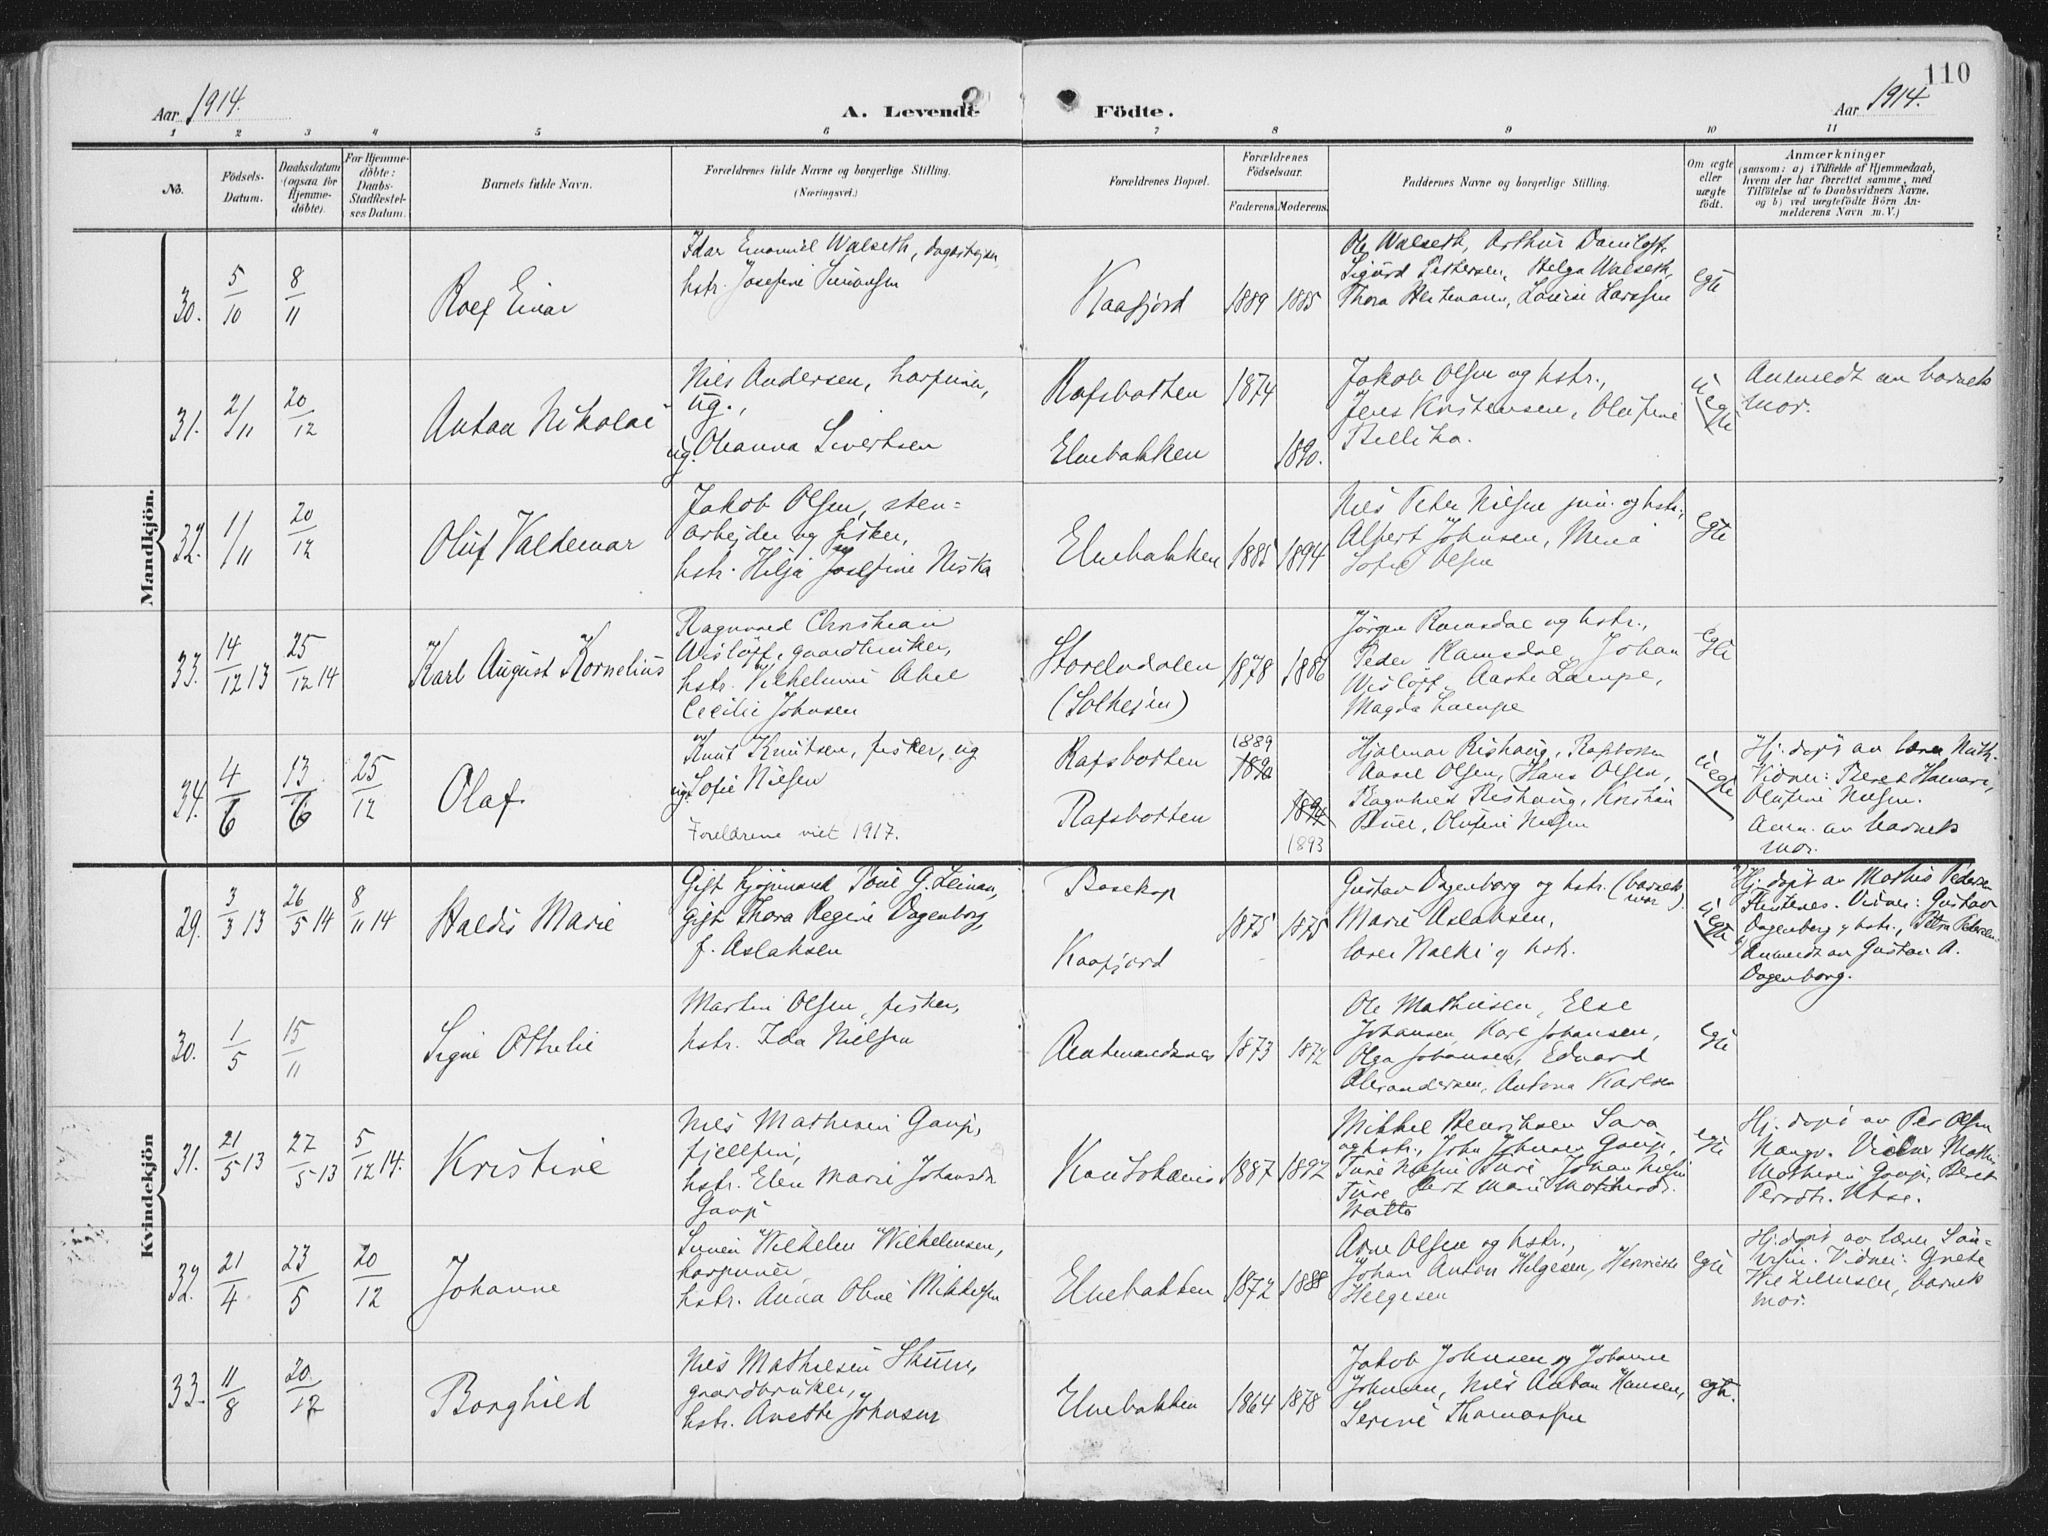 110
Aar 1914.
A. Levende Födte.
Aar 1914.
1 2 3 4 5 6 7 8 9 10 11
No.
Födsels-Datum.
Daabsdatum (ogsaa for Hjemme-döbte).
For Hjemme-döbte: Daabs-Stadfæstel-ses Datum.
Barnets fulde Navn.
Forældrenes fulde Navne og borgerlige Stilling.
(Næringsvei.)
Forældrenes Bopæl.
Forældrenes Födselsaar.
Faderens. Moderens.
Faddernes Navne og borgerlige Stilling.
Om ægte eller uægte födt.
Anmærkninger
(saasom: a) i Tilfælde af Hjemmedaab,
hvem der har forrettet samme, med
Tilföielse af to Daabsvidners Navne,
og b) ved uægtefödte Börn An-
melderens Navn m. V.)
Mandkjön.
30. 5/10 8/11 Rolf Einar
Idar Emanuel Walseth, dagarbejder,
hstr. Josefine Simonsen
Kaafjord 1889 1885
Ole Walseth, Arthur Daniloff,
Sigurd Pettersen, Helga Walseth,
Thora Heitmann, Lovise Larssen
egte
31. 2/11 20/12 Anton Nikolai
Nils Andersen, harpuner,
ug.,
ug. Oleanna Sivertsen
Rafsbotten 1874
Elvebakken 1890.
Jakob Olsen og hstr.,
Jens Kristensen, Olufine
Billiko.
uegte
Anmeldt av barnets
mor.
32. 1/11 20/12 Oluf Valdemar
Jakob Olsen, sten=
arbejder og fisker,
hstr. Hilja Josefine Niska
Elvebakken 1885 1894
Nils Peter Nilsen jun. og hstr.,
Albert Johnsen, Mina
Sofie Olsen
egte
33. 14/12 13 25/12 14 Karl August Kornelius
Ragnvald Christian
Wisløff, gaardbruker,
hstr. Vilhelmine Abel
Cecilie Johnsen
Storelvdalen
(Solhejm)
1878 1886
Jørgen Ramsdal og hstr.,
Peder Ramsdal, Johan
Wisløff, Aasta Lampe,
Magda Lampe
egte
34. 4/6 13/6 25/12 Olaf
Knut Knutsen, fisker, ug
ug. Sofie Nilsen
Foreldrene viet 1917.
Rafsbotten 1889 1890
Rafsbotten 1894 1893
Hjalmar Rishaug, Rafsbotten
Aasel Olsen, Hans Olsen,
Ragnhild Rishaug, Kristian
Buer, Olufine Nilsen
uegte
Hj. døpt av lærer Nuth.
Vidner: Beret Hamari,
Olufine Nilsen.
Anm. av barnets
mor.
Kvindekjön
29. 3/3 13 26/5 14 8/11 14 Haldis Marie
Gift kjøpmand Poul G. Leinan,
gift Thora Regine Dagenborg,
f. Aslaksen
Bosekop
Kaafjord
1875 1875
Gustav Dagenborg og hstr. (barnets
mor).
Marie Aslaksen,
lærer Nælki og hstr.
uegte
Hj. døpt av Mathis Pedersen
Stentnes. Vidner: Gustav
Dagenborg og hstr., Petra Pedersen.
Anmeldt av Gustav A.
Dagenborg.
30. 1/5 15/11 Signe Othelie
Martin Olsen, fisker,
hstr. Ida Nielsen
Amtmandsnes 1873 1872
Ole Mathiesen, Else
Johansen, Karl Johansen,
Olga Johansen, Edvard
Alexandersen, Antona Karlsen
egte
31. 21/5 13 27/5 13 5/12 14. Kristine
Nils Mathesen Gaup,
fjellfin,
hstr. Elen Marie Johansdr.
Gaup
Kautokeino 1887 1892
Mikkel Henriksen Sara
og hstr., John Johnsen Gaup,
Ture Nilsen Turi, Johan Nilsen
Ture, Berit Marie Mathisdr.
Vatto
egte
Hj. døpt av Per Olsen
Mange. Vidner Mathis
Mathesen Gaup, Beret
Persdtr. Utse.
32. 21/4 23/5 20/12 Johanne
Simen Wilhelm Wilhelmsen,
harpuner,
hstr. Anna Oline Mikkelsen
Elvebakken 1872 1888
Arne Olsen og hstr.,
Johan Anton Helgesen, Henriette
Helgesen
egte
Hj. døpt av lærer
Vidner: Grete
Wilhelmsen, barnets
mor.
33. 11/8 20/12 Borghild
Nils Mathiesen Skum,
gaardbruker,
hstr. Anette Johnsen
Elvebakken 1864 1878
Jakob Johnsen og Johanne
Johnsen, Nils Anton Hansen,
Serine Thomassen
egte.